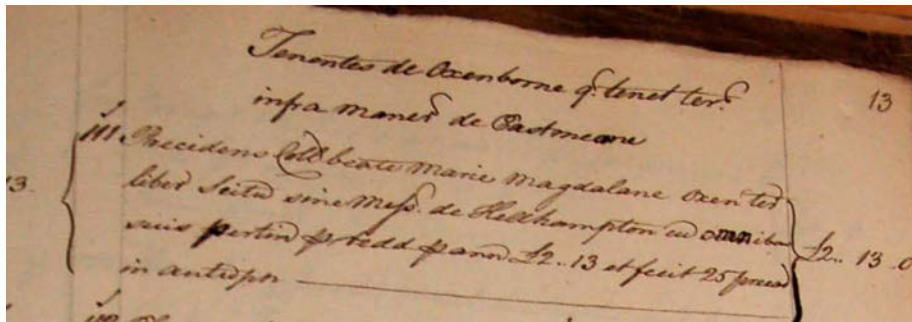 Tenentes de Oxenborne q: tenet ter:
infra Maner de Eastmeone
13
111 Precidens Coll beate Marie Magdalane Oxen ted
liber Scitu sine Mess: de Hellhampton cu omnibu
suis pertin p redd p ann £2..13 et fecit 25 precar
£2..13..0
in antiqpr
13.